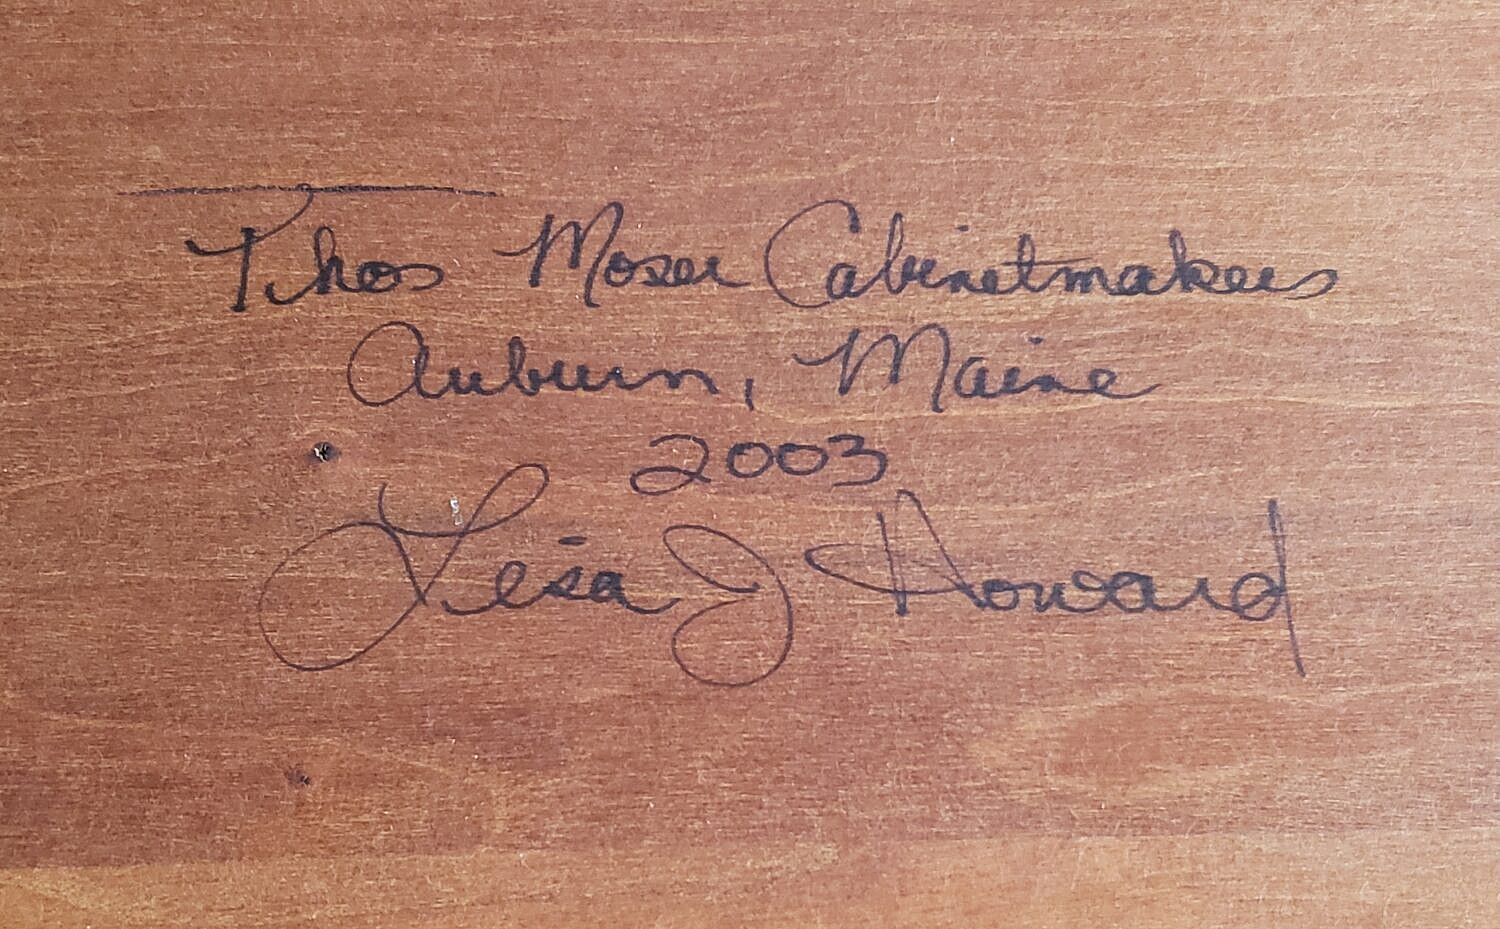 Thos Moser Cabinetmakers
Auburn, Maine
2003
Lisa J Howard